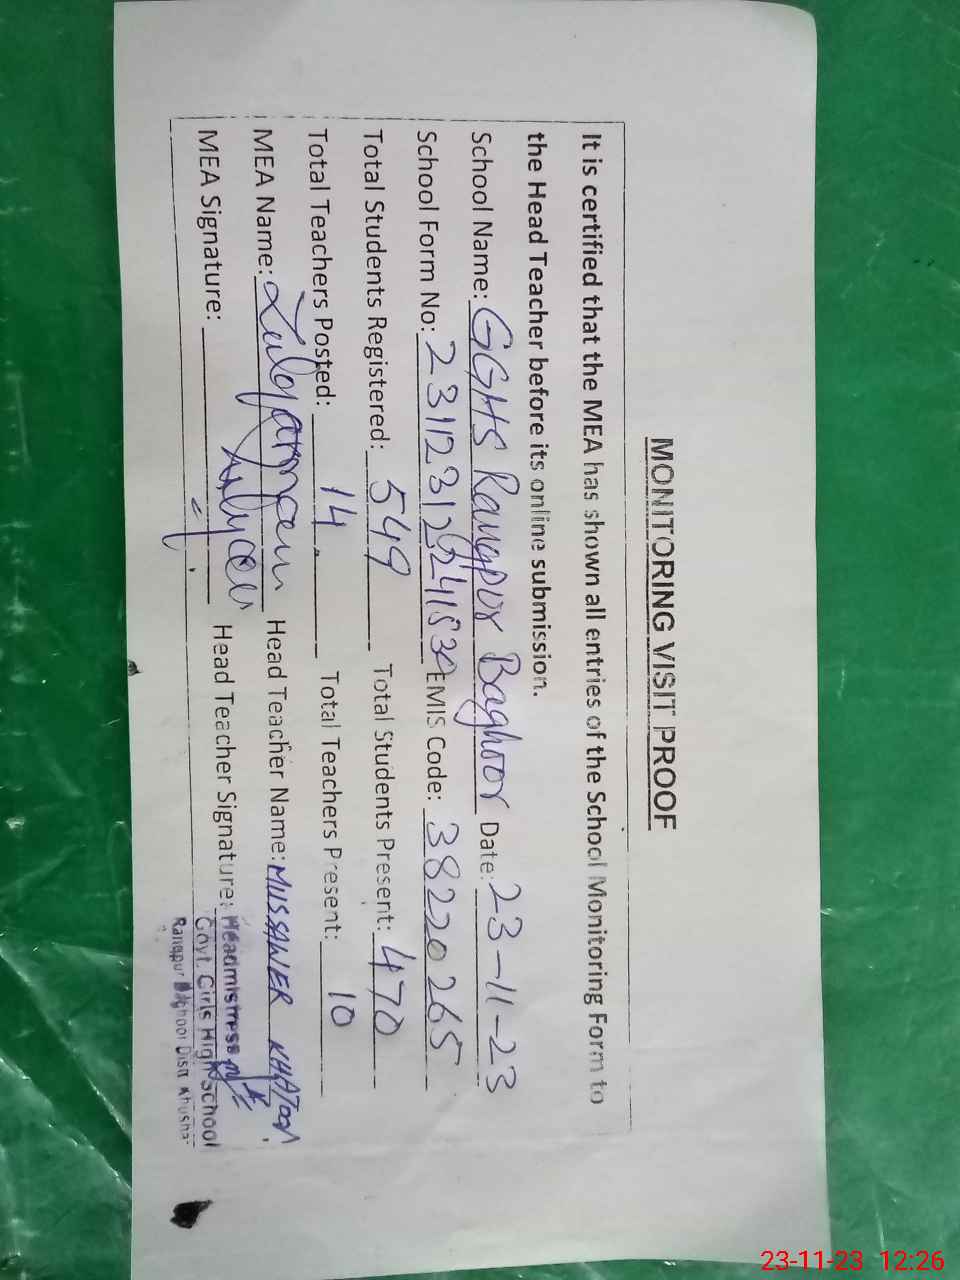 MONITORING VISIT PROOF
It is certified that the MEA has shown all entries of the School Monitoring Form to
the Head Teacher before its online submission.
School Name: GGHS Rangpur Baghoor Date: 23-11-23
School Form No: EMIS Code: 38220265
Total Students Registered: 549 Total Students Present: 470
Total Teachers Posted: 14 Total Teachers Present: 10
MEA Name: Head Teacher Name: MUSSAWER KHATOON
MEA Signature: Head Teacher Signature:
Headmistress
Govt. Girls High School
Rangpur Baghoor Distt Khushab
23-11-23 12:26